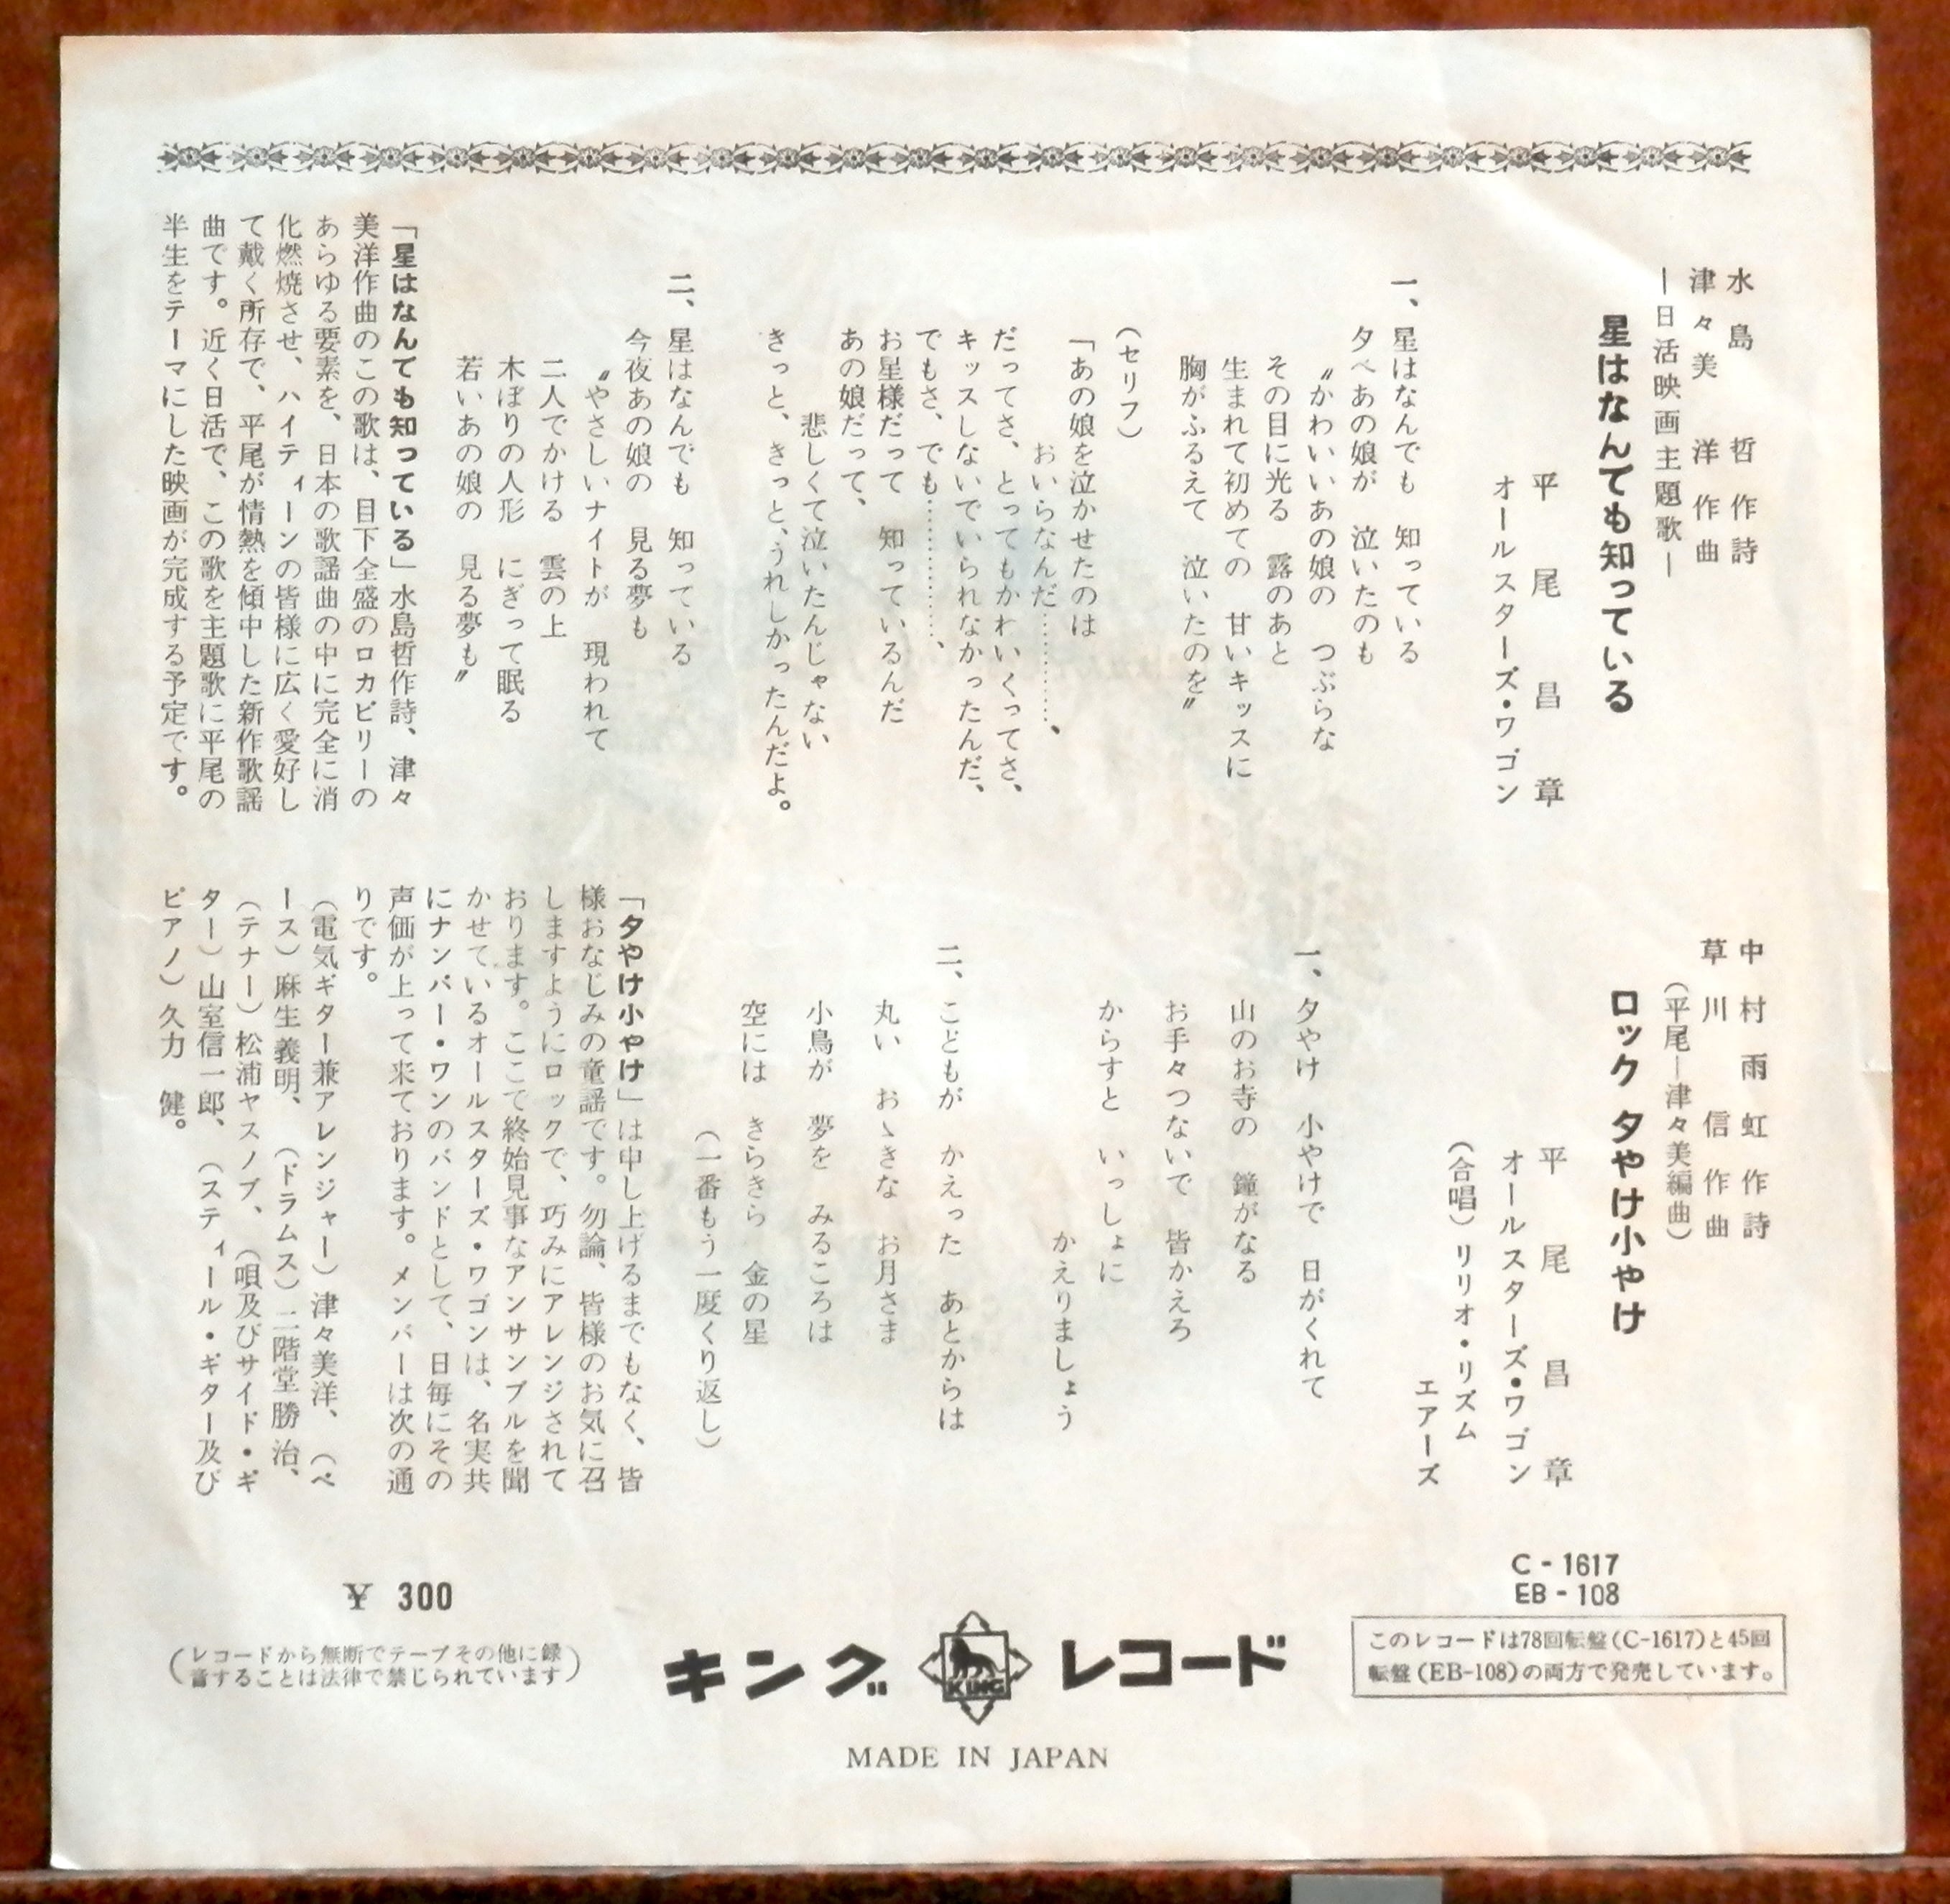 水島　哲 作詩
津々美　洋 作曲
―日活映画主題歌―
星はなんても知っている
平尾昌章
オールスターズ・ワゴン
一、星はなんでも　知っている
夕べあの娘が　泣いたのも
〝かわいいあの娘の　つぶらな
その目に光る　露のあと
生まれて初めての　甘いキッスに
胸がふるえて　泣いたのを〟
（セリフ）
「あの娘を泣かせたのは
おいらなんだ…………、
だってさ、とってもかわいくってさ、
キッスしないでいられなかったんだ、
でもさ、でも…………、
お星様だって　知っているんだ
あの娘だって、
悲しくて泣いたんじゃない
きっと、きっと、うれしかったんだよ。
二、星はなんでも　知っている
今夜あの娘の　見る夢も
〝やさしいナイトが　現われて
二人でかける　雲の上
木ぼりの人形　にぎって眠る
若いあの娘の　見る夢も〟
「星はなんても知っている」水島哲作詩、津々
美洋作曲のこの歌は、目下全盛のロカビリーの
あらゆる要素を、日本の歌謡曲の中に完全に消
化燃焼させ、ハイティーンの皆様に広く愛好し
て戴く所存で、平尾が情熱を傾中した新作歌謡
曲です。近く日活で、この歌を主題歌に平尾の
半生をテーマにした映画が完成する予定です。
中村雨虹 作詩
草川　信 作曲
（平尾―津々美編曲）
ロック 夕やけ小やけ
平尾昌章
オールスターズ・ワゴン
（合唱）リリオ・リズム
エアーズ
一、夕やけ　小やけで　日がくれて
山のお寺の　鐘がなる
お手々つないで　皆かえろ
からすと　いっしょに
かえりましょう
二、こどもが　かえった　あとからは
丸い　おゝきな　お月さま
小鳥が　夢を　みるころは
空には　きらきら　金の星
（一番もう一度くり返し）
「夕やけ小やけ」は申し上げるまでもなく、皆
様おなじみの童謡です。勿論、皆様のお気に召
しますようにロックで、巧みにアレンジされて
おります。ここで終始見事なアンサンブルを聞
かせているオールスターズ・ワゴンは、名実共
にナンバー・ワンのバンドとして、日毎にその
声価が上って来ております。メンバーは次の通
りです。
（電気ギター兼アレンジャー）津々美洋、（ベ
ース）麻生義明、（ドラムス）二階堂勝治、
（テナー）松浦ヤスノブ、（唄及びサイド・ギ
ター）山室信一郎、（スティール・ギター及び
ピアノ）久力　健。
C-1617
EB-108
このレコードは78回転盤(C-1617)と45回
転盤(EB-108)の両方で発売しています。
キング KING レコード
MADE IN JAPAN
¥ 300
（レコードから無断でテープその他に録
音することは法律で禁じられています）